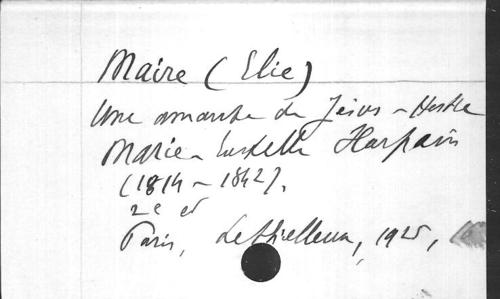 Maire (Elie)
Une amante de Jésus-Hostie
Marie-Eustelle Harpain
(1814-1842).
2e éd
Paris, Lethielleux, 1925,